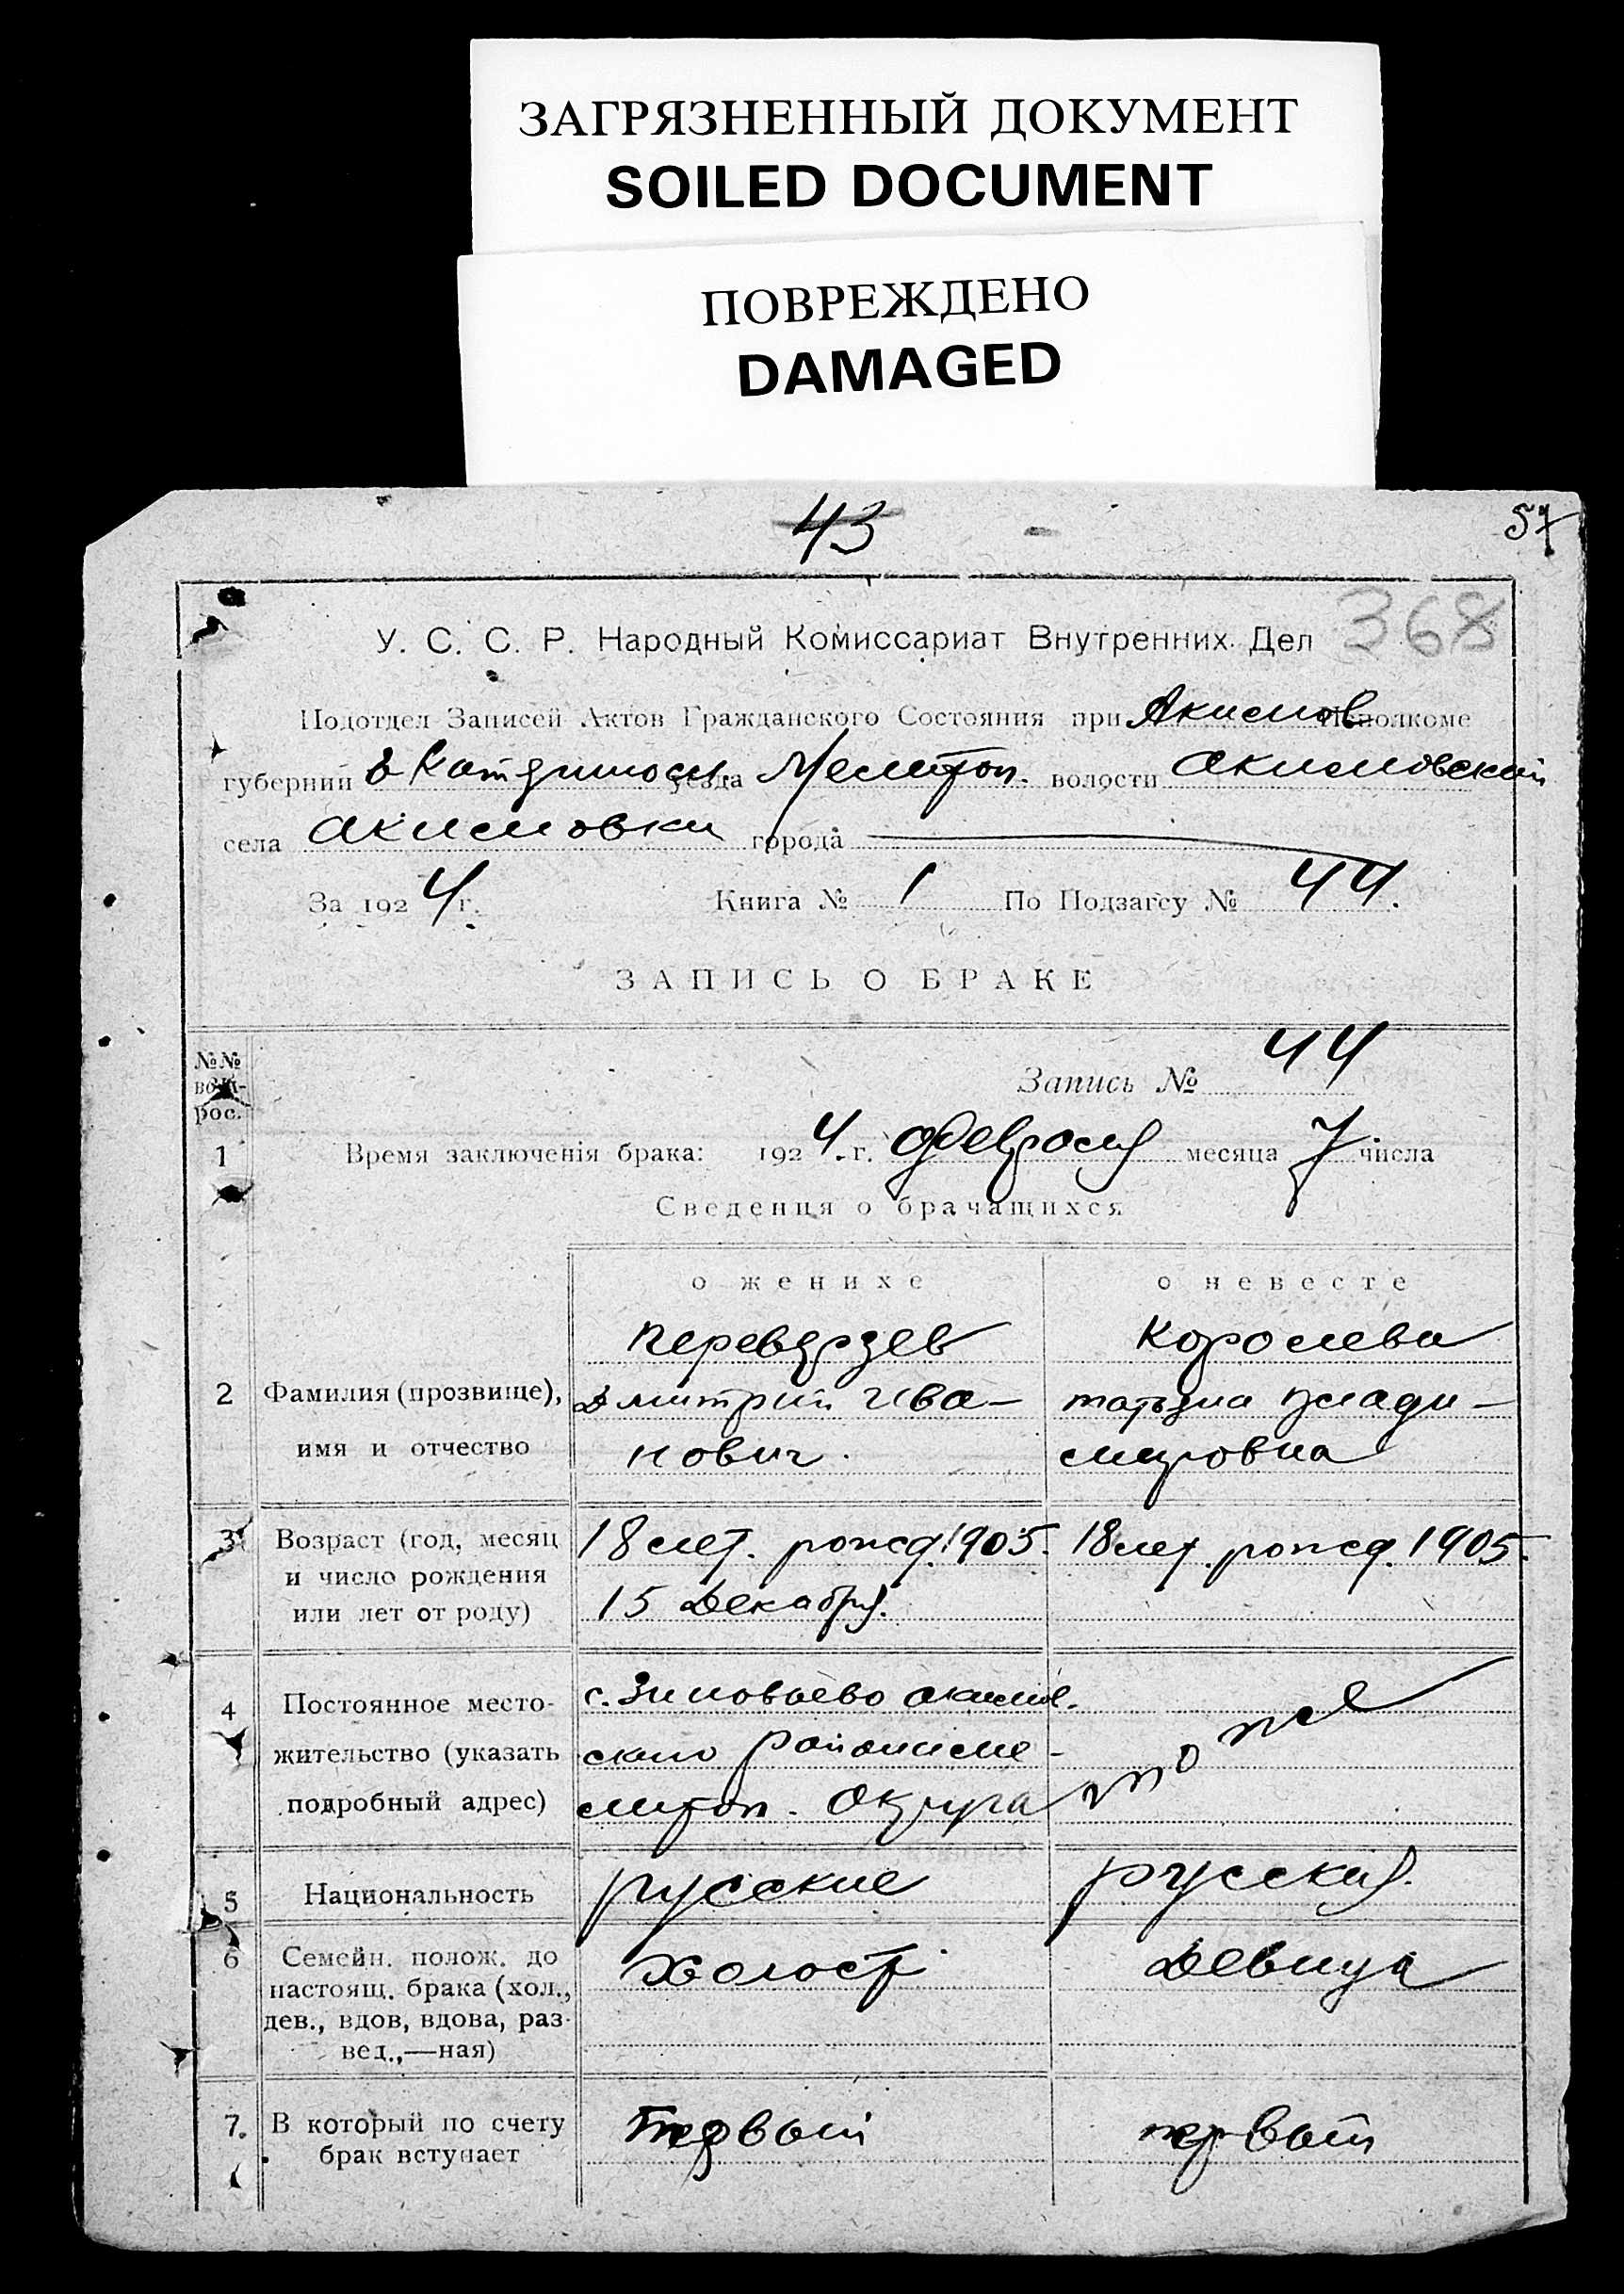 ЗАГРЯЗНЕННЫЙ ДОКУМЕНТ
SOILED DOCUMENT
ПОВРЕЖДЕНО
DAMAGED
43
57
368
У. С. С. Р. Народный Комиссариат Внутренних Дел
Подотдел Записей Актов Гражданского Состояния при Акимов Исполкоме
губернии уезда Мелитоп. волости Акимовский
села Акимовки города
За 1924 г. Книга № 1 По Подзагсу № 44.
ЗАПИСЬ О БРАКЕ
№№ воп-рос.
Запись № 44
1 Время заключенія брака: 1924 г. февраля месяца 7 числа
Сведения о брачащихся
о женихе о невесте
Переверзев Королева
2 Фамилия (прозвище), Дмитрий Ива- Татьяна Влади-
имя и отчество нович. мировна
3 Возраст (год, месяц 18 лет. рожд. 1905. 18 лет. рожд. 1905.
и число рождения 15 Декабря.
или лет от роду)
4 Постоянное место- с. Зиновьево Акимов.
жительство (указать ского Ме- то же
подробный адрес) литоп. Округа
5 Национальность русские русская.
6 Семейн. полож. до Холост Девица
настоящ. брака (хол.,
дев., вдов, вдова, раз-
вед.,—ная)
7. В который по счету Первый первый
брак вступает